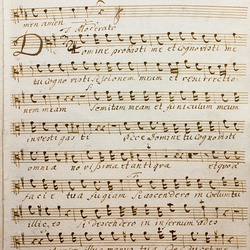 men amen
Moderato
Domine probasti me et cognovisti me
tu cognovisti sessionem meam et resurrectio
nem meam Semitam meam et funiculum meum
investigasti Ecce Domine tu cognovisti
omnia novissima et antiqua et quo a
facie tua fugiam Si ascendero in Coelum tu
illic es si descendero in infernum ades